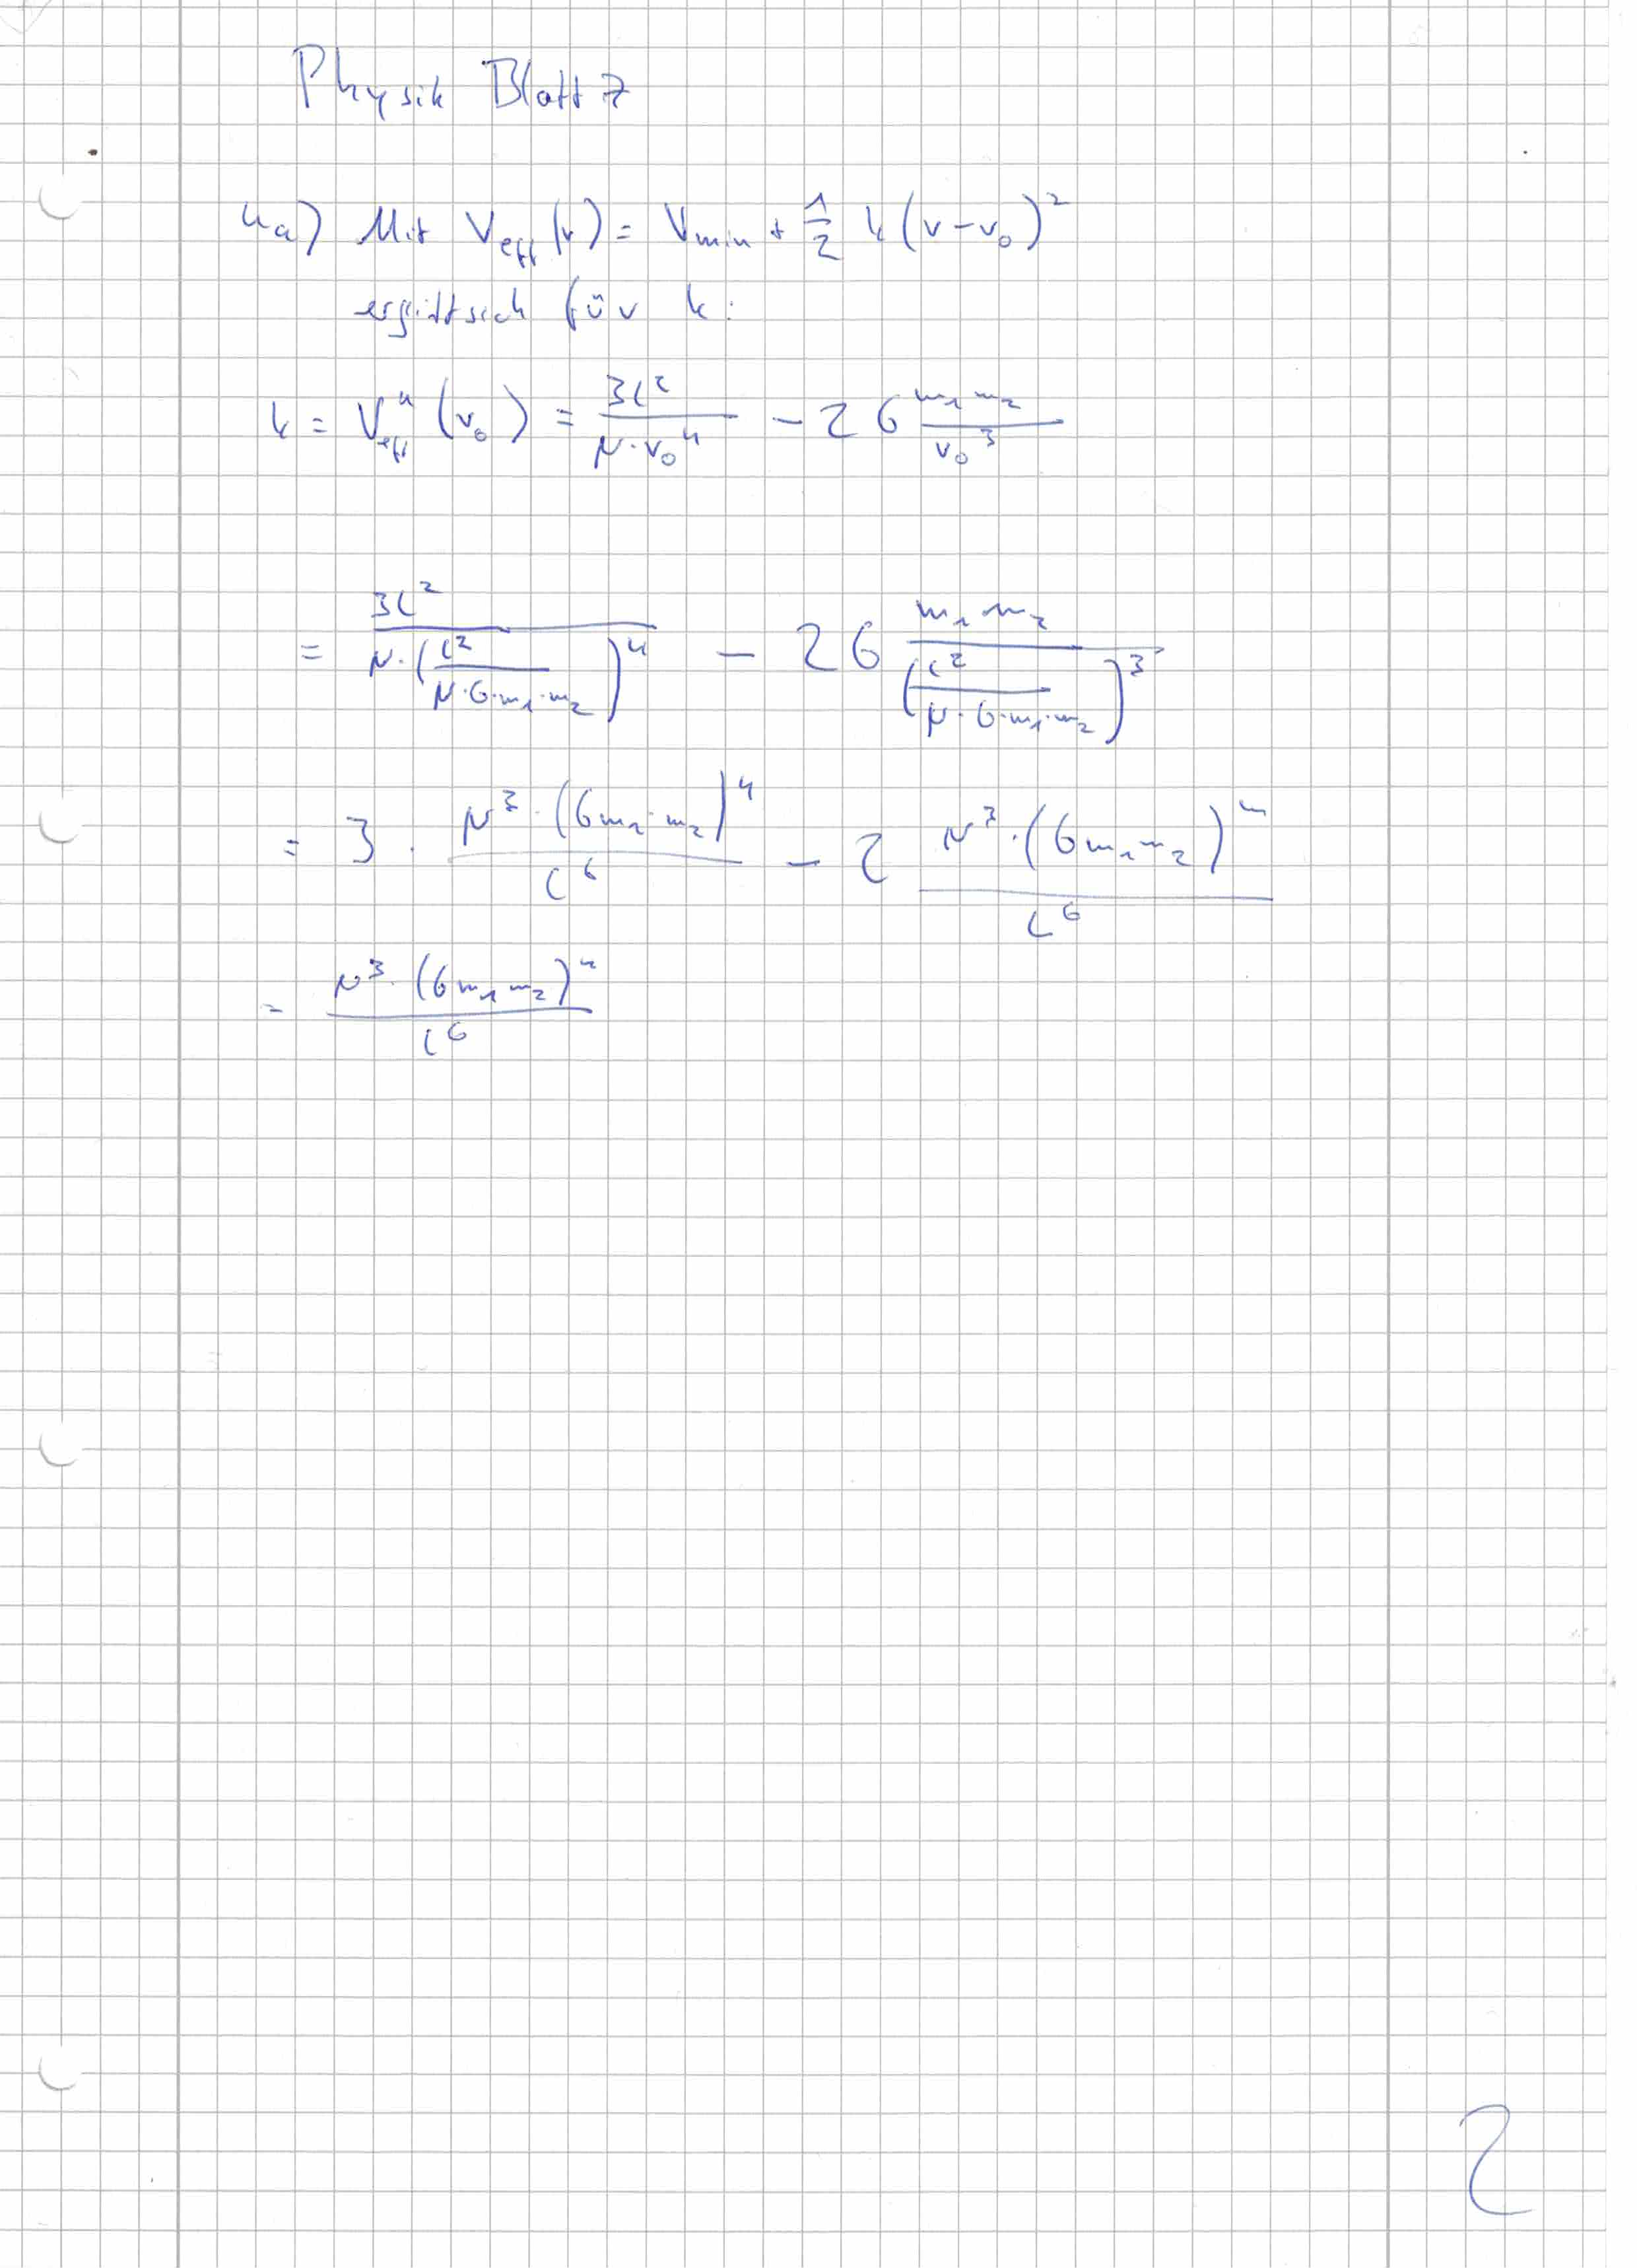 Physik Blatt 7
4a) Mit V_eff(r) = V_min + 1/2 k (r - r_0)^2
ergibt sich für k:
k = V_eff''(r_0) = 3L^2 / (μ·r_0^4) - 2G m_1 m_2 / r_0^3
= 3L^2 / (μ·(L^2 / (μ·G·m_1·m_2))^4) - 2G m_1 m_2 / (L^2 / (μ·G·m_1·m_2))^3
= 3 · μ^3·(G m_1·m_2)^4 / L^6 - 2 μ^3·(G m_1 m_2)^4 / L^6
= μ^3·(G m_1 m_2)^4 / L^6
2